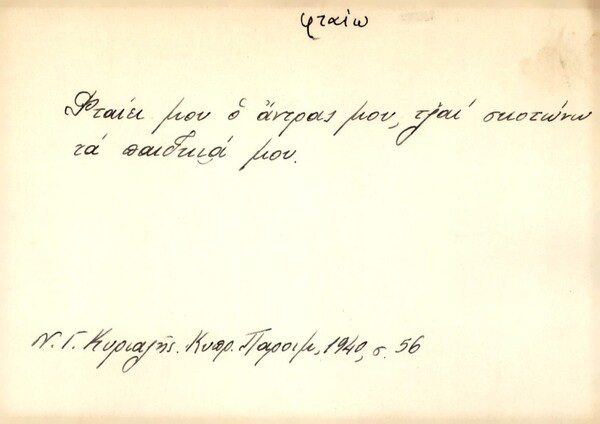 φταίω
Φταίει μου ὁ ἄντρας μου, τζ̌αί σκοτώνω
τά παιδκιά μου.
Ν. Γ. Κυριαζῆς. Κυπρ. Παροιμ, 1940, σ. 56